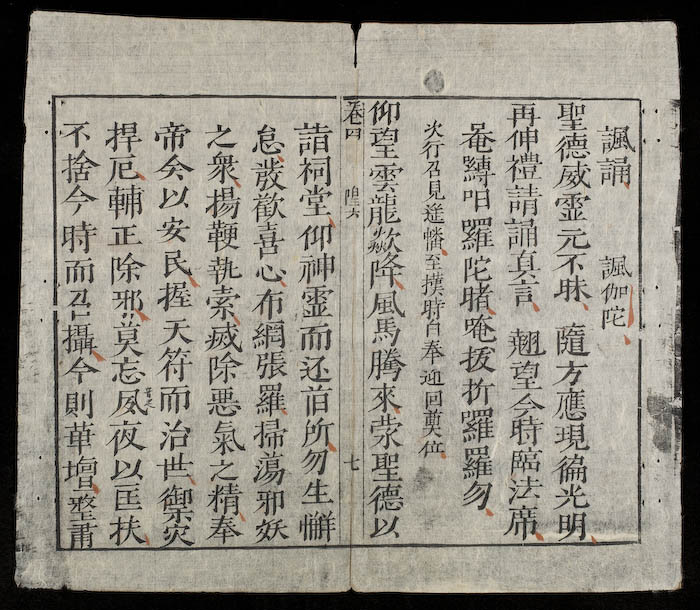 諷誦 諷伽陀
聖德威靈元不昧 隨方應現徧光明
再伸禮請誦真言 翹望今時臨法席
唵縳呾羅陀賭唵拔折羅羅勿
次行召見遙幡至撰時自奉迎回奠位
仰望雲龍歘降風馬騰來荣聖德以
卷四 隍六 七
詣祠堂仰神靈而还首所勿生懈
怠發歡喜心布網張羅掃蕩邪妖
之衆揚鞭執索滅除悪氣之精奉
帝矣以安民握天符而治世禦灾
捍厄輔正除邪莫忘夙夜以匡扶
不捨今時而召攝今則華壇整肅